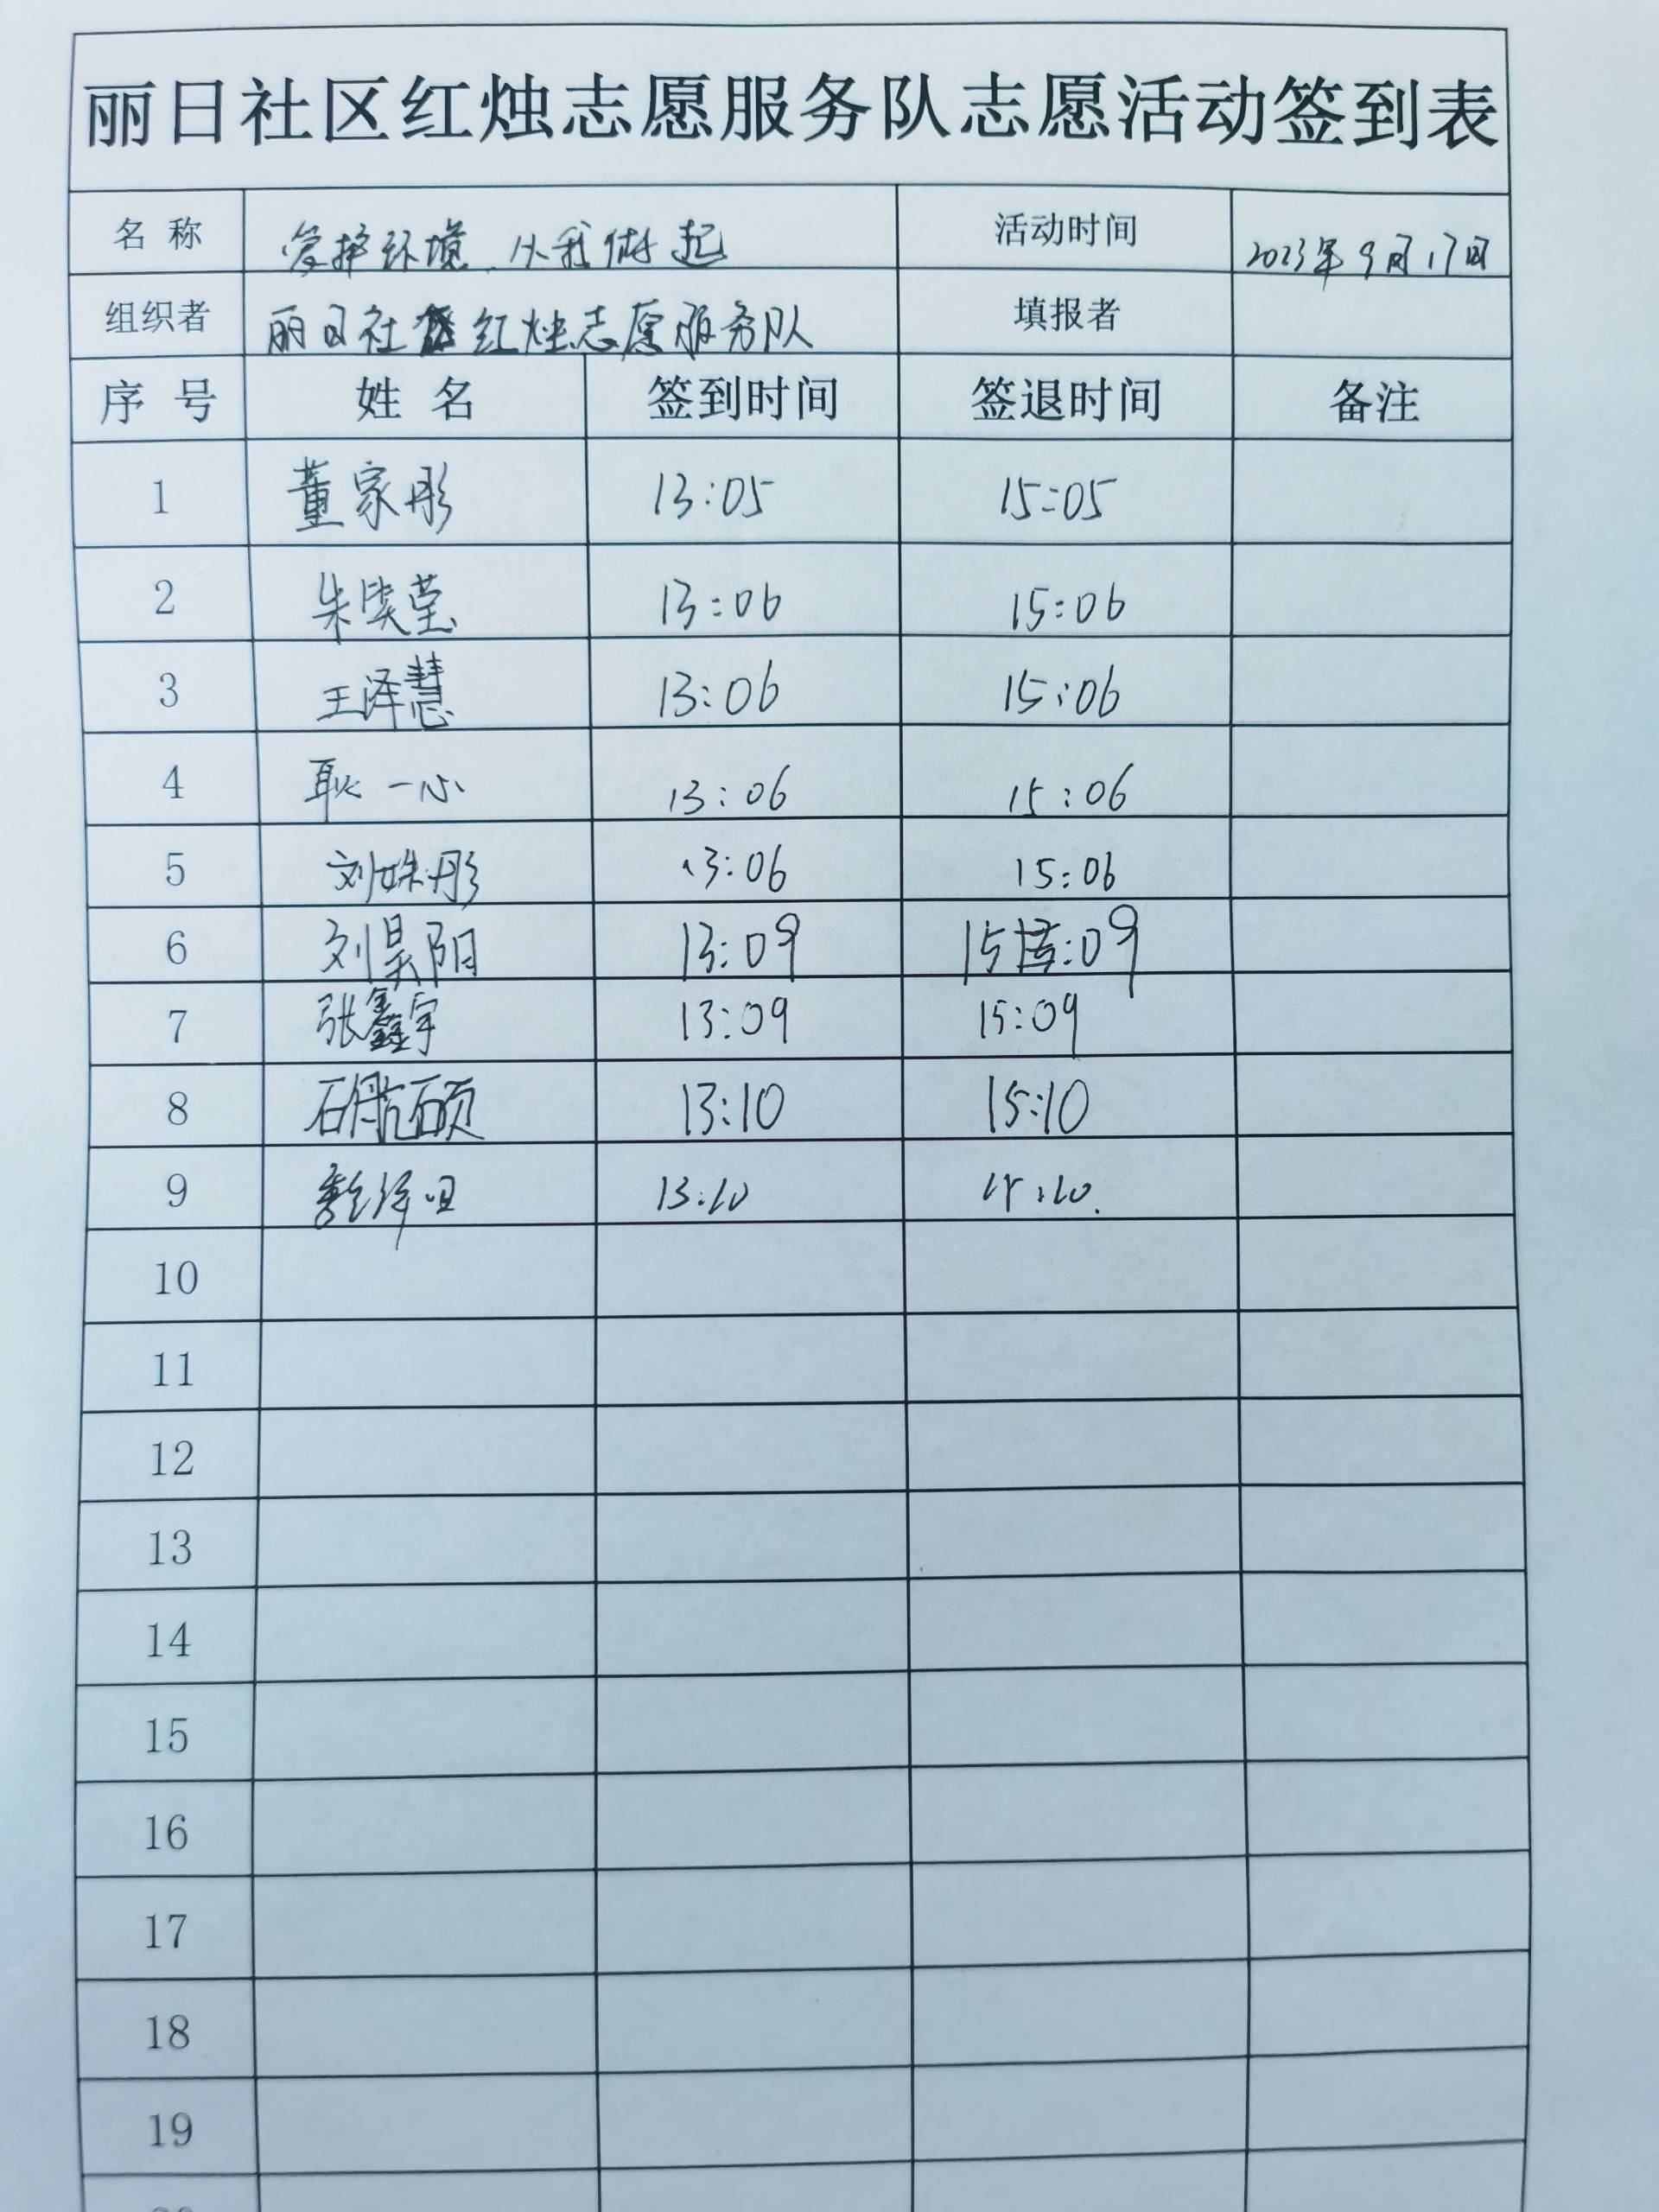 丽日社区红烛志愿服务队志愿活动签到表
名 称 爱护环境、从我做起 活动时间 2023年9月17日
组织者 丽日社区红烛志愿服务队 填报者
序 号 姓 名 签到时间 签退时间 备注
1 董家彤 13:05 15:05
2 朱奕莹 13:06 15:06
3 王泽慧 13:06 15:06
4 耿一心 13:06 15:06
5 刘姝彤 13:06 15:06
6 刘昊阳 13:09 15:09
7 张鑫宇 13:09 15:09
8 石航硕 13:10 15:10
9 13:10 15:10.
10
11
12
13
14
15
16
17
18
19